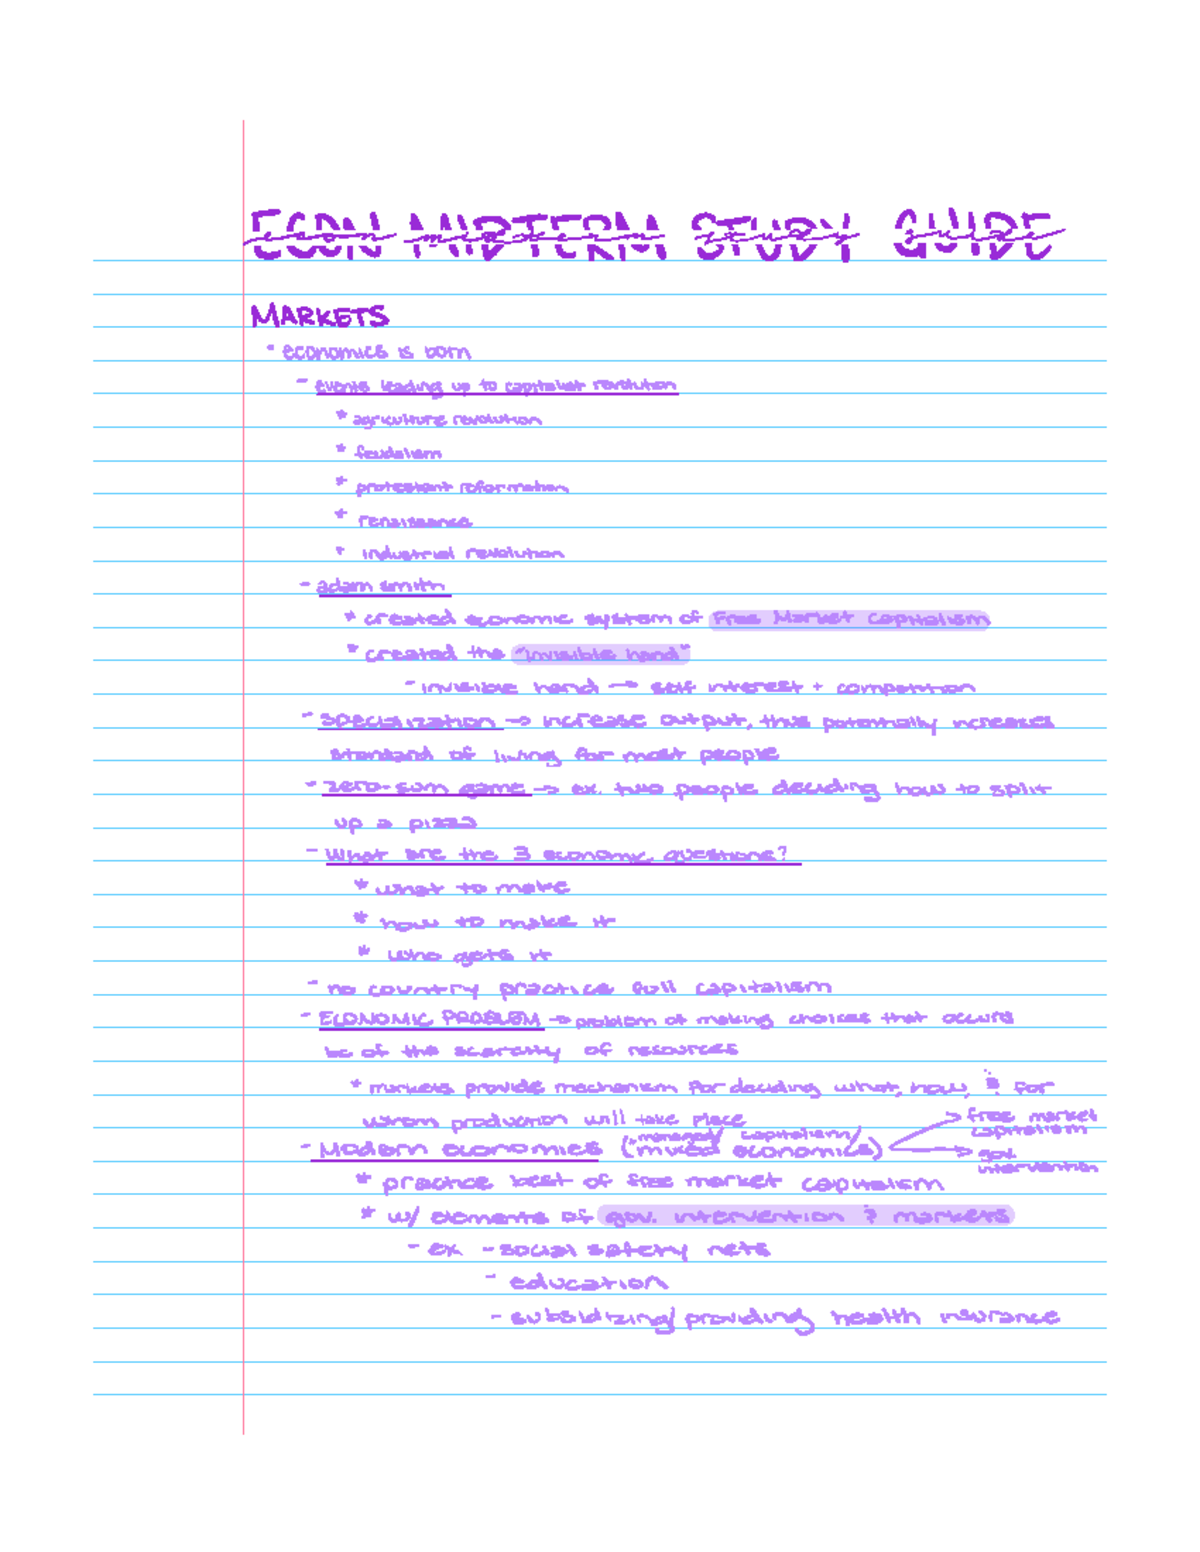 ECON MIDTERM STUDY GUIDE
MARKETS
- economics is born
- events leading up to capitalist revolution
* agriculture revolution
* feudalism
* protestant reformation
* renaissance
* industrial revolution
- adam smith
* created economic system of Free Market Capitalism
* created the "invisible hand"
- invisible hand → self interest + competition
- specialization → increase output, thus potentially increases
standard of living for most people
- zero-sum game → ex. two people deciding how to split
up a pizza
- What are the 3 economic questions?
* what to make
* how to make it
* who gets it
- no country practice full capitalism
- ECONOMIC PROBLEM → problem of making choices that occurs
bc of the scarcity of resources
* markets provide mechanism for deciding what, how, & for
whom production will take place
- Modern economies (mixed economics) → free market capitalism
"managed/ capitalism/ → gov. intervention
* practice best of free market capitalism
* w/ elements of gov. intervention & markets
- ex - social safety nets
- education
- subsidizing/providing health insurance